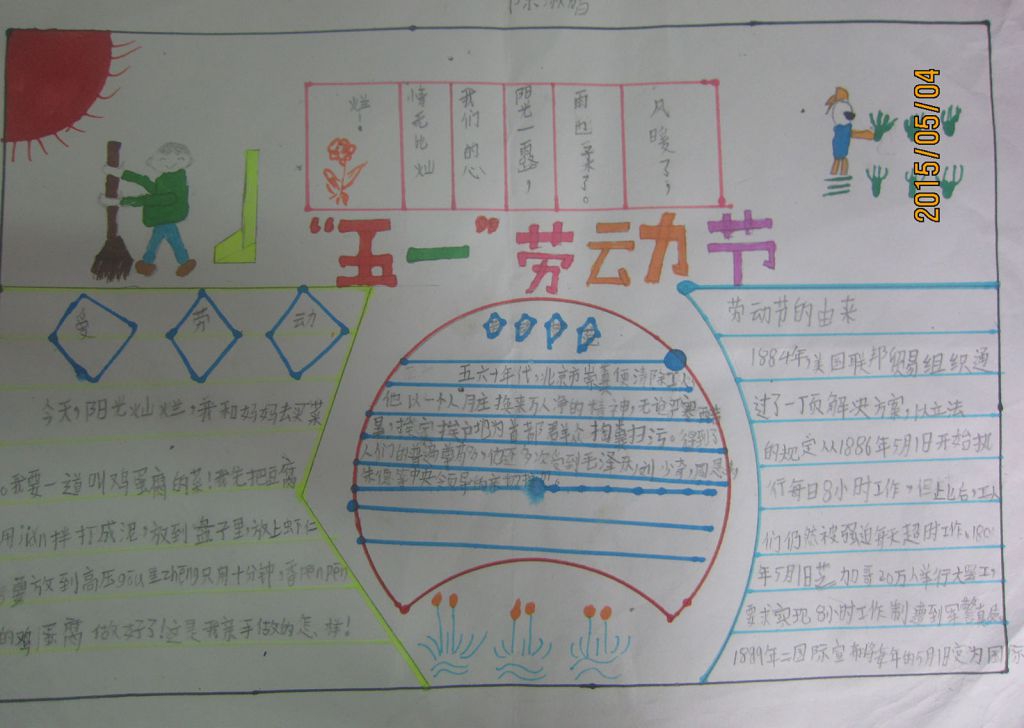 风暖了，
雨也来了。
阳光一露，
我们的心
情无比灿
烂！
2015/05/04
“五一”劳动节
爱劳动
今天，阳光灿烂，我和妈妈去买菜
。我要一道叫鸡蛋腐的菜！我先把豆腐
用 拌打成泥，放到盘子里，放上虾仁
要放到高压gōu里zhēng只用十分钟，香pēn pēn
的鸡蛋腐做好了！这是我亲手做的怎样！
五六十年代，北京市崇真便清除工人
他以一个人月庄换来万人净的精神，无论严寒酷
暑，挨家挨户地为首都群众掏粪扫污。得到了
人们的普遍 ，他还多次受到毛泽东，刘少奇，周恩
朱德等中央领导的亲切接见。
劳动节的由来
1884年，美国联邦贸易组织通
过了一项解决方案，以立法
的规定从1886年5月1日开始执
行每日8小时工作，但 ，工人
们仍然被强迫每天超时工作。
年5月1日芝加哥20万人举行大罢工，
要求实现8小时工作制遭到军警
1889年二国际宣布将每年的5月1日定为国际